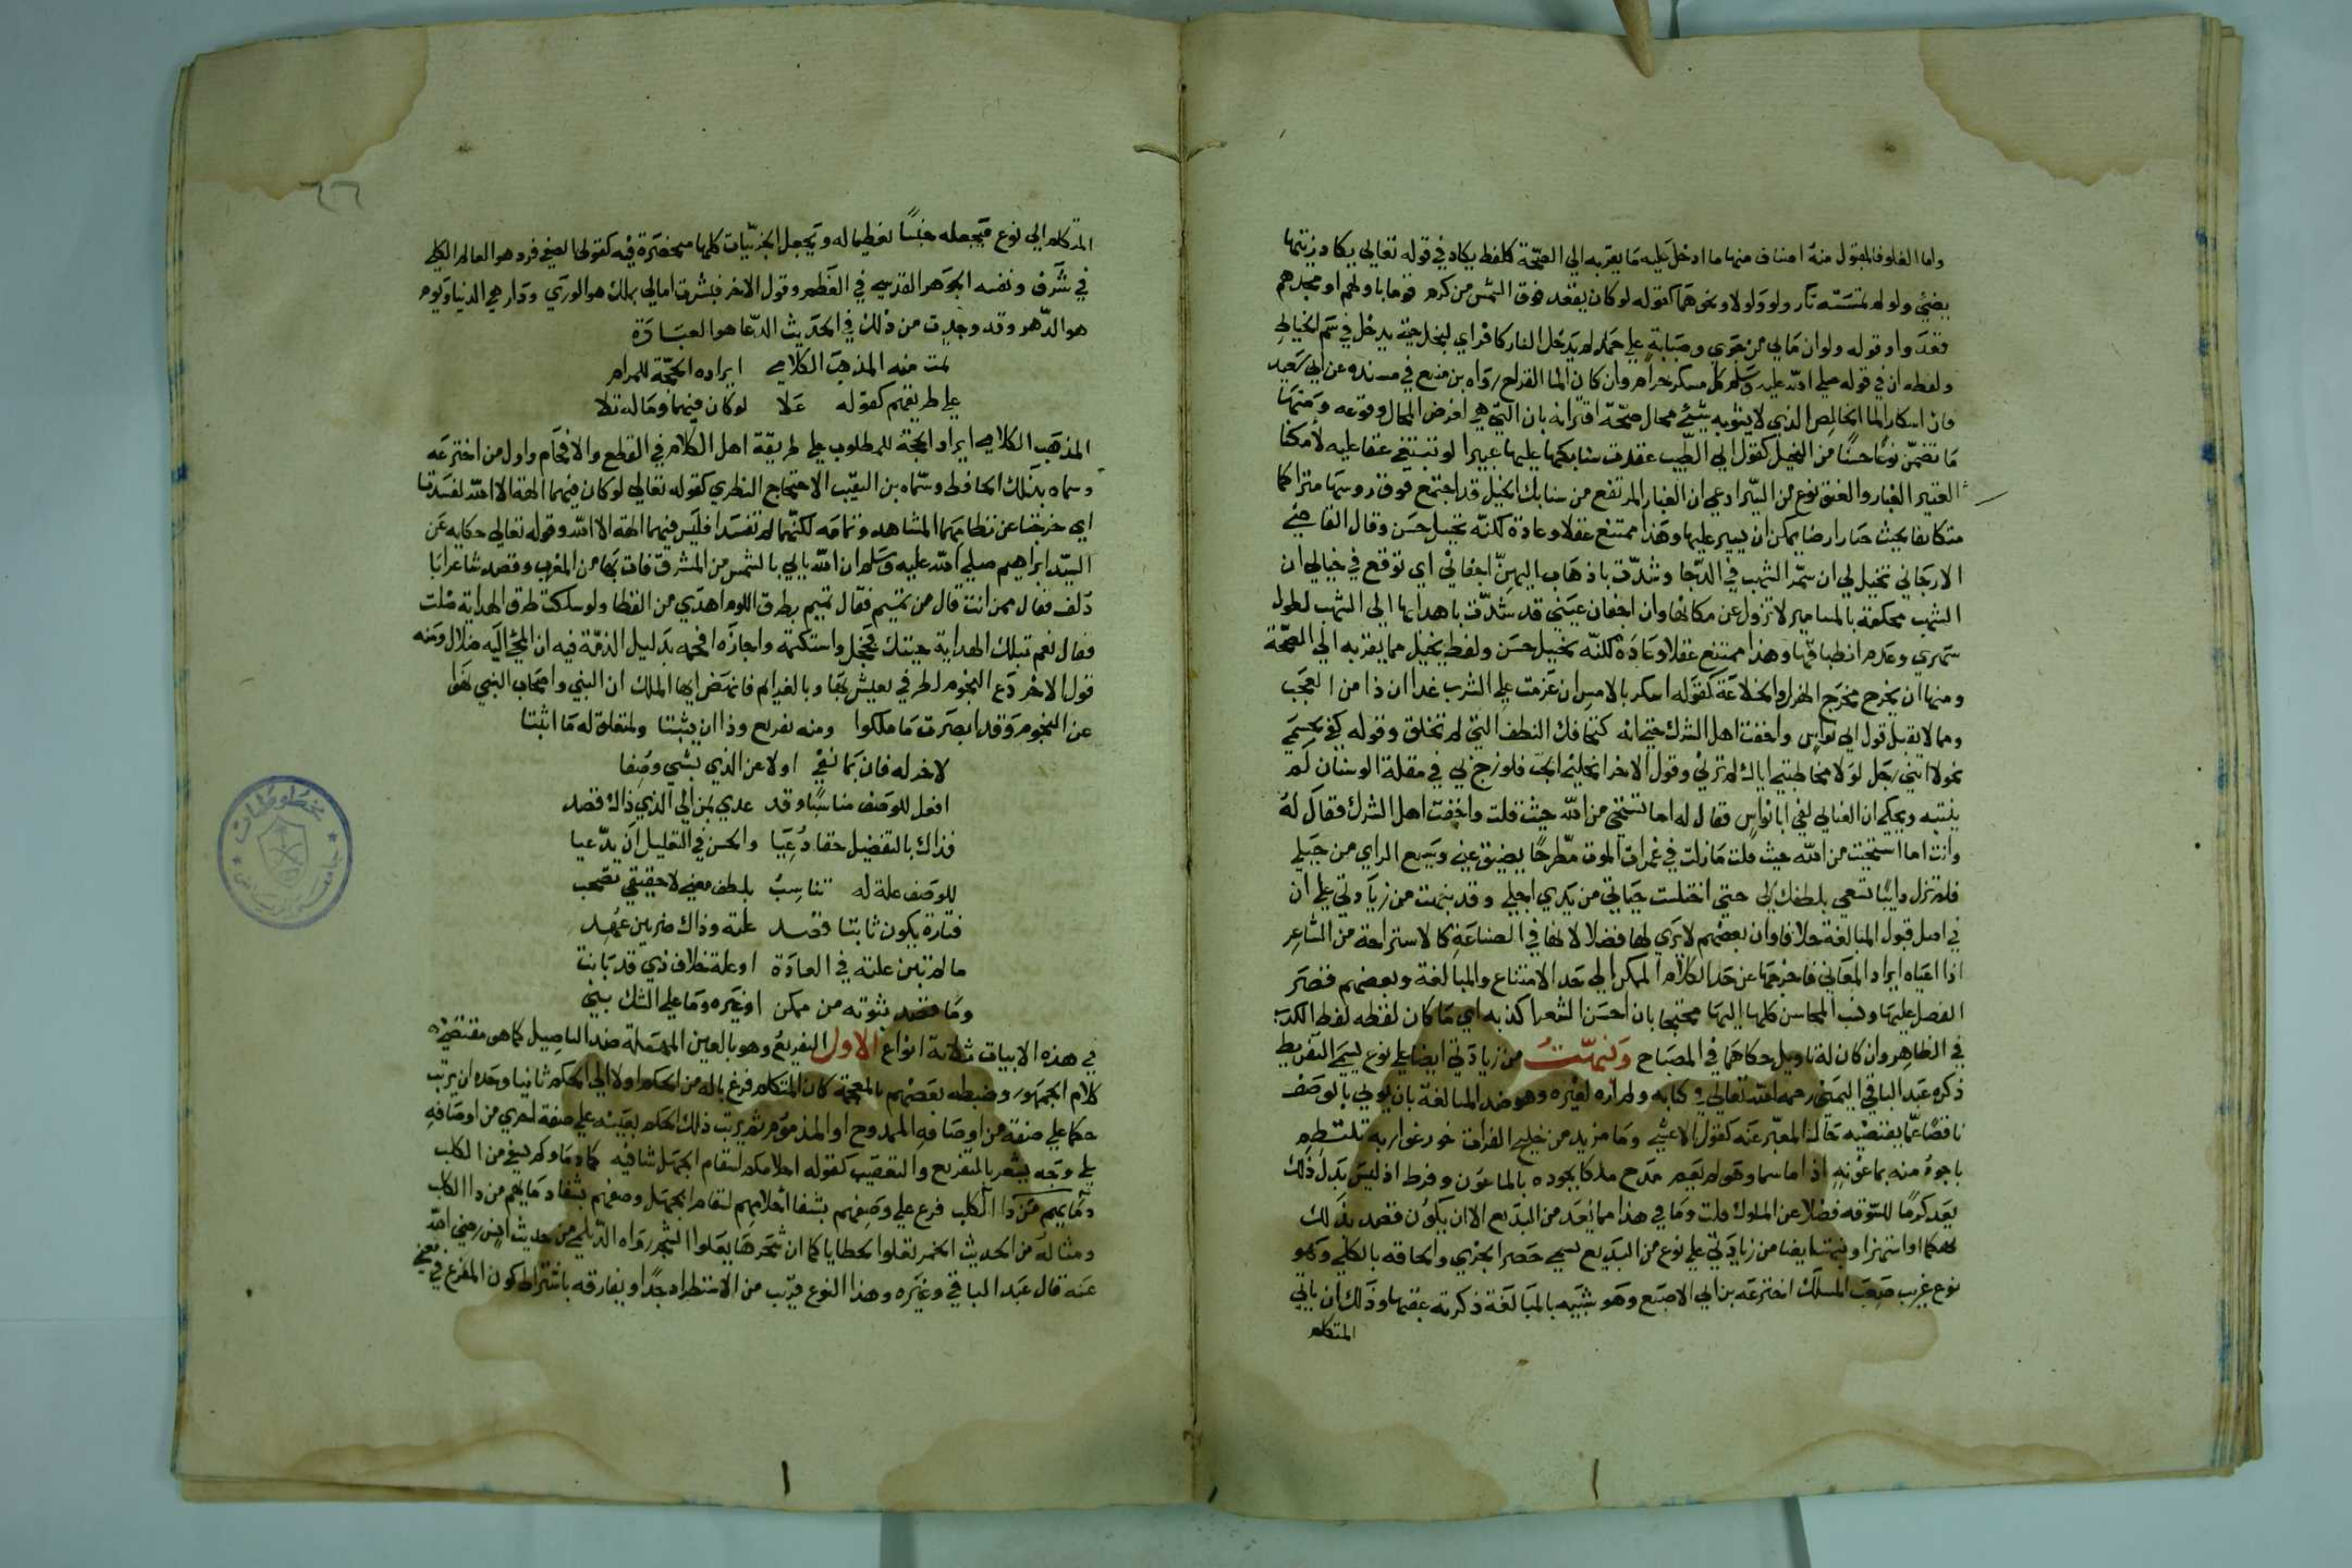 واما الغلو فالمقبول منه اصناف منها ما ادخل عليه ما يقربه الي الصحة كلفظ يكاد في قوله تعالي يكاد زيتها
يضئ ولو لم تمسسه نار ولو ولولا ونحوهما كقوله لو كان يقعد فوق الشمس من كرم قوم باولهم او مجدهم
قعدوا وقوله ولو ان مابي من جوي وصبابة علي جمل لم يدخل النار كافر اي لنحل حتي يدخل في سم الخياط
ولفظه ان في قوله صلي الله عليه وسلم كل مسكر حرام وان كان الما القراح رواه بن منيع في مسنده عن ابي سعيد
فان اسكار الما الخالص الذي لا يشوبه شئ محال صحة اقترانه بان التي هي لفرض المحال وقوعه ومنها
ما تضمن نوعا حسنا من التخيل كقول ابي الطيب عقدت سنابكها عليها عثيرا لو تبتغي عنقا عليه لأمكنا
العثير الغبار والعنق نوع من السير ادعي ان الغبار المرتفع من سنابك الخيل قد اجتمع فوق روسها متراكما
متكاثفا بحيث صار ارضا يمكن ان يسير عليها وهذا ممتنع عقلا وعادة لكنه تخييل حسن وقال القاضي
الارجاني تخيل لي ان سمر الشهب في الدجا وشدت باهدابي اليهن اجفاني اي توقع في خيالي ان
الشهب محكمة بالمسامير لا تزول عن مكانها وان اجفان عيني قد شدت باهدابها الي الشهب لطول
سهري وعدم انطباقها وهذا ممتنع عقلا وعادة لكنه تخييل حسن ولفظ يخيل مما يقربه الي الصحة
ومنها ان يخرج مخرج الهزل والخلاعة كقوله اسكر بالامس ان عزمت علي الشرب غدا ان ذا من العجب
ومما لا يقبل قول ابي نواس واخفت اهل الشرك حتي انه لتخافك النطف التي لم تخلق وقوله كفي بجسمي
نحولا انني رجل لولا مخاطبتي اياك لم ترني وقول الاخر انحلني الحب فلو زج بي في مقلة الوسنان لم
ينتبه ويحكي ان العتابي لقي ابا نواس فقال له اما تستحي من الله حيث قلت واخفت اهل الشرك فقال له
وانت اما استحيت من الله حيث قلت ما زلت في غمرات الموت مطرحا يضيق عني وسيع الراي من حيلي
فلم تزل دايبا تسعي بلطفك لي حتي اختلست حياتي من يدي اجلي وقد نبهت من زيادتي علي ان
في اصل قبول المبالغة خلافا وان بعضهم لا يري لها فضلا لانها في الصناعة كالاستراحة من الشاعر
اذا اعياه ايراد المعاني فاخرجها عن حد الكلام الممكن الي حد الامتناع والمبالغة وبعضهم قصر
الفصل عليها ونسب المحاسن كلها اليها محتجا بان احسن الشعر اكذبه اي ما كان لفظه لفظ الكذب
في الظاهر وان كان له تاويل حكاهما في المصباح ونبهت من زيادتي ايضا علي نوع يسمي التفريط
ذكره عبد الباقي اليمني رحمه الله تعالي في كتابه ولم اره لغيره وهو ضد المبالغة بان يوتي بالوصف
ناقصا عما يقتضيه حال المعبر عنه كقول الاعشي وما مزيد من خليج الفرات خور غواربه تلتطم
باجود منه بماعونه اذا ما سماوهم لم تغم مدح ملكا بجوده بالماعون وفرط اذ ليس بذل ذلك
يعد كرما للسوقه فضلا عن الملوك قلت وما في هذا مما يعد من البديع الا ان يكون قصد بذلك
تهكما او استهزا ونبهت ايضا من زيادتي علي نوع من البديع يسمي حصر الجزي والحاقه بالكلي وهو
نوع غريب صعب المسلك اخترعه بن ابي الاصبع وهو شبيه بالمبالغة ذكرته عقبها وذلك ان ياتي
المتكلم
٦٦
المتكلم الي نوع فيجعله جنسا تعظيما له ويجعل الجزئيات كلها منحصرة فيه كقولنا لصيغي فرد هو العالم الكلي
في شرف ونفسه الجوهر القدسي في العظم وقول الاخر فبشرت امالي بملك هو الوري ودار هي الدنيا ويوم
هو الدهر وقد وجدت من ذلك في الحديث الدعا هو العبادة
ثمت منه المذهب الكلامي ايراده الحجة للمرام
علي طريقهم كقوله علا لو كان فيهما وما له تلا
المذهب الكلامي ايراد الحجة للمطلوب علي طريقة اهل الكلام في القطع والافحام واول من اخترعه
وسماه بذلك الجاحظ وسماه بن النقيب الاحتجاج النظري كقوله تعالي لو كان فيهما الهة الا الله لفسدتا
اي خرجتا عن نظامهما المشاهد وتمامه لكنهما لم تفسدا فليس فيهما الهة الا الله وقوله تعالي حكايه عن
السيد ابراهيم صلي الله عليه وسلم ان الله ياتي بالشمس من المشرق فات بها من المغرب وقصد شاعر ابا
دلف فقال ممن انت قال من تميم فقال تميم بطرق اللوم اهدي من القطا ولو سلكت طرق الهداية ضلت
فقال نعم بتلك الهداية جيتك فخجل واستكتمه واجازه افحمه بدليل الذمة فيه ان المجئ اليه ضلال ومنه
قول الاخر دع النجوم لطرفي يعيش بها وبالعزايم فانهض ايها الملك ان النبي واصحاب النبي نهوا
عن النجوم وقد ابصرت ما ملكوا ومنه تفريع وذا ان يثبتا ولمتعلق له ما اثبتا
لاخر له فان بما نفي اولا عن الذي بشي وصفا
افعل للوصف مناسبا وقد عدي بمن الي الذي ذاك قصد
فذاك بالتفضيل حقا دعيا والحسن في التعليل ان يدعيا
للوصف علة له تناسب بلطف معني لا حقيقي تصحب
فتارة يكون ثابتا قصد علته وذاك ضربين عهد
ما لم تبن علته في العادة او علة خلاف ذي قد بانت
وما قصد ثبوته من ممكن او غيره وما علي الشك بني
في هذه الابيات ثلاثة انواع الاول التفريع وهو بالعين المهملة ضد التاصيل كما هو مقتضي
كلام الجمهور وضبطه بعضهم بالمعجمة كان المتكلم فرغ باله من الحكم اولا الي الحكم ثانيا وحده ان يرتب
حكما علي صفة من اوصاف الممدوح او المذموم ثم يرتب ذلك الحكم بعينه علي صفة اخري من اوصافه
علي وجه يشعر بالتفريع والتعقيب كقوله احلامكم لسقام الجهل شافيه كما دماوكم تشفي من الكلب
دمايهم من دا الكلب فرع علي وصفهم بشفا احلامهم لسقام الجهل وصفهم بشفا دمايهم من دا الكلب
ومثاله من الحديث الخمر تعلوا الخطايا كما ان شجرها يعلوا الشجر رواه الديلمي من حديث انس رضي الله
عنه قال عبد الباقي وغيره وهذا النوع قريب من الاستطراد جدا ويفارقه باشتراط كون المفرع في معني
مخطوطات